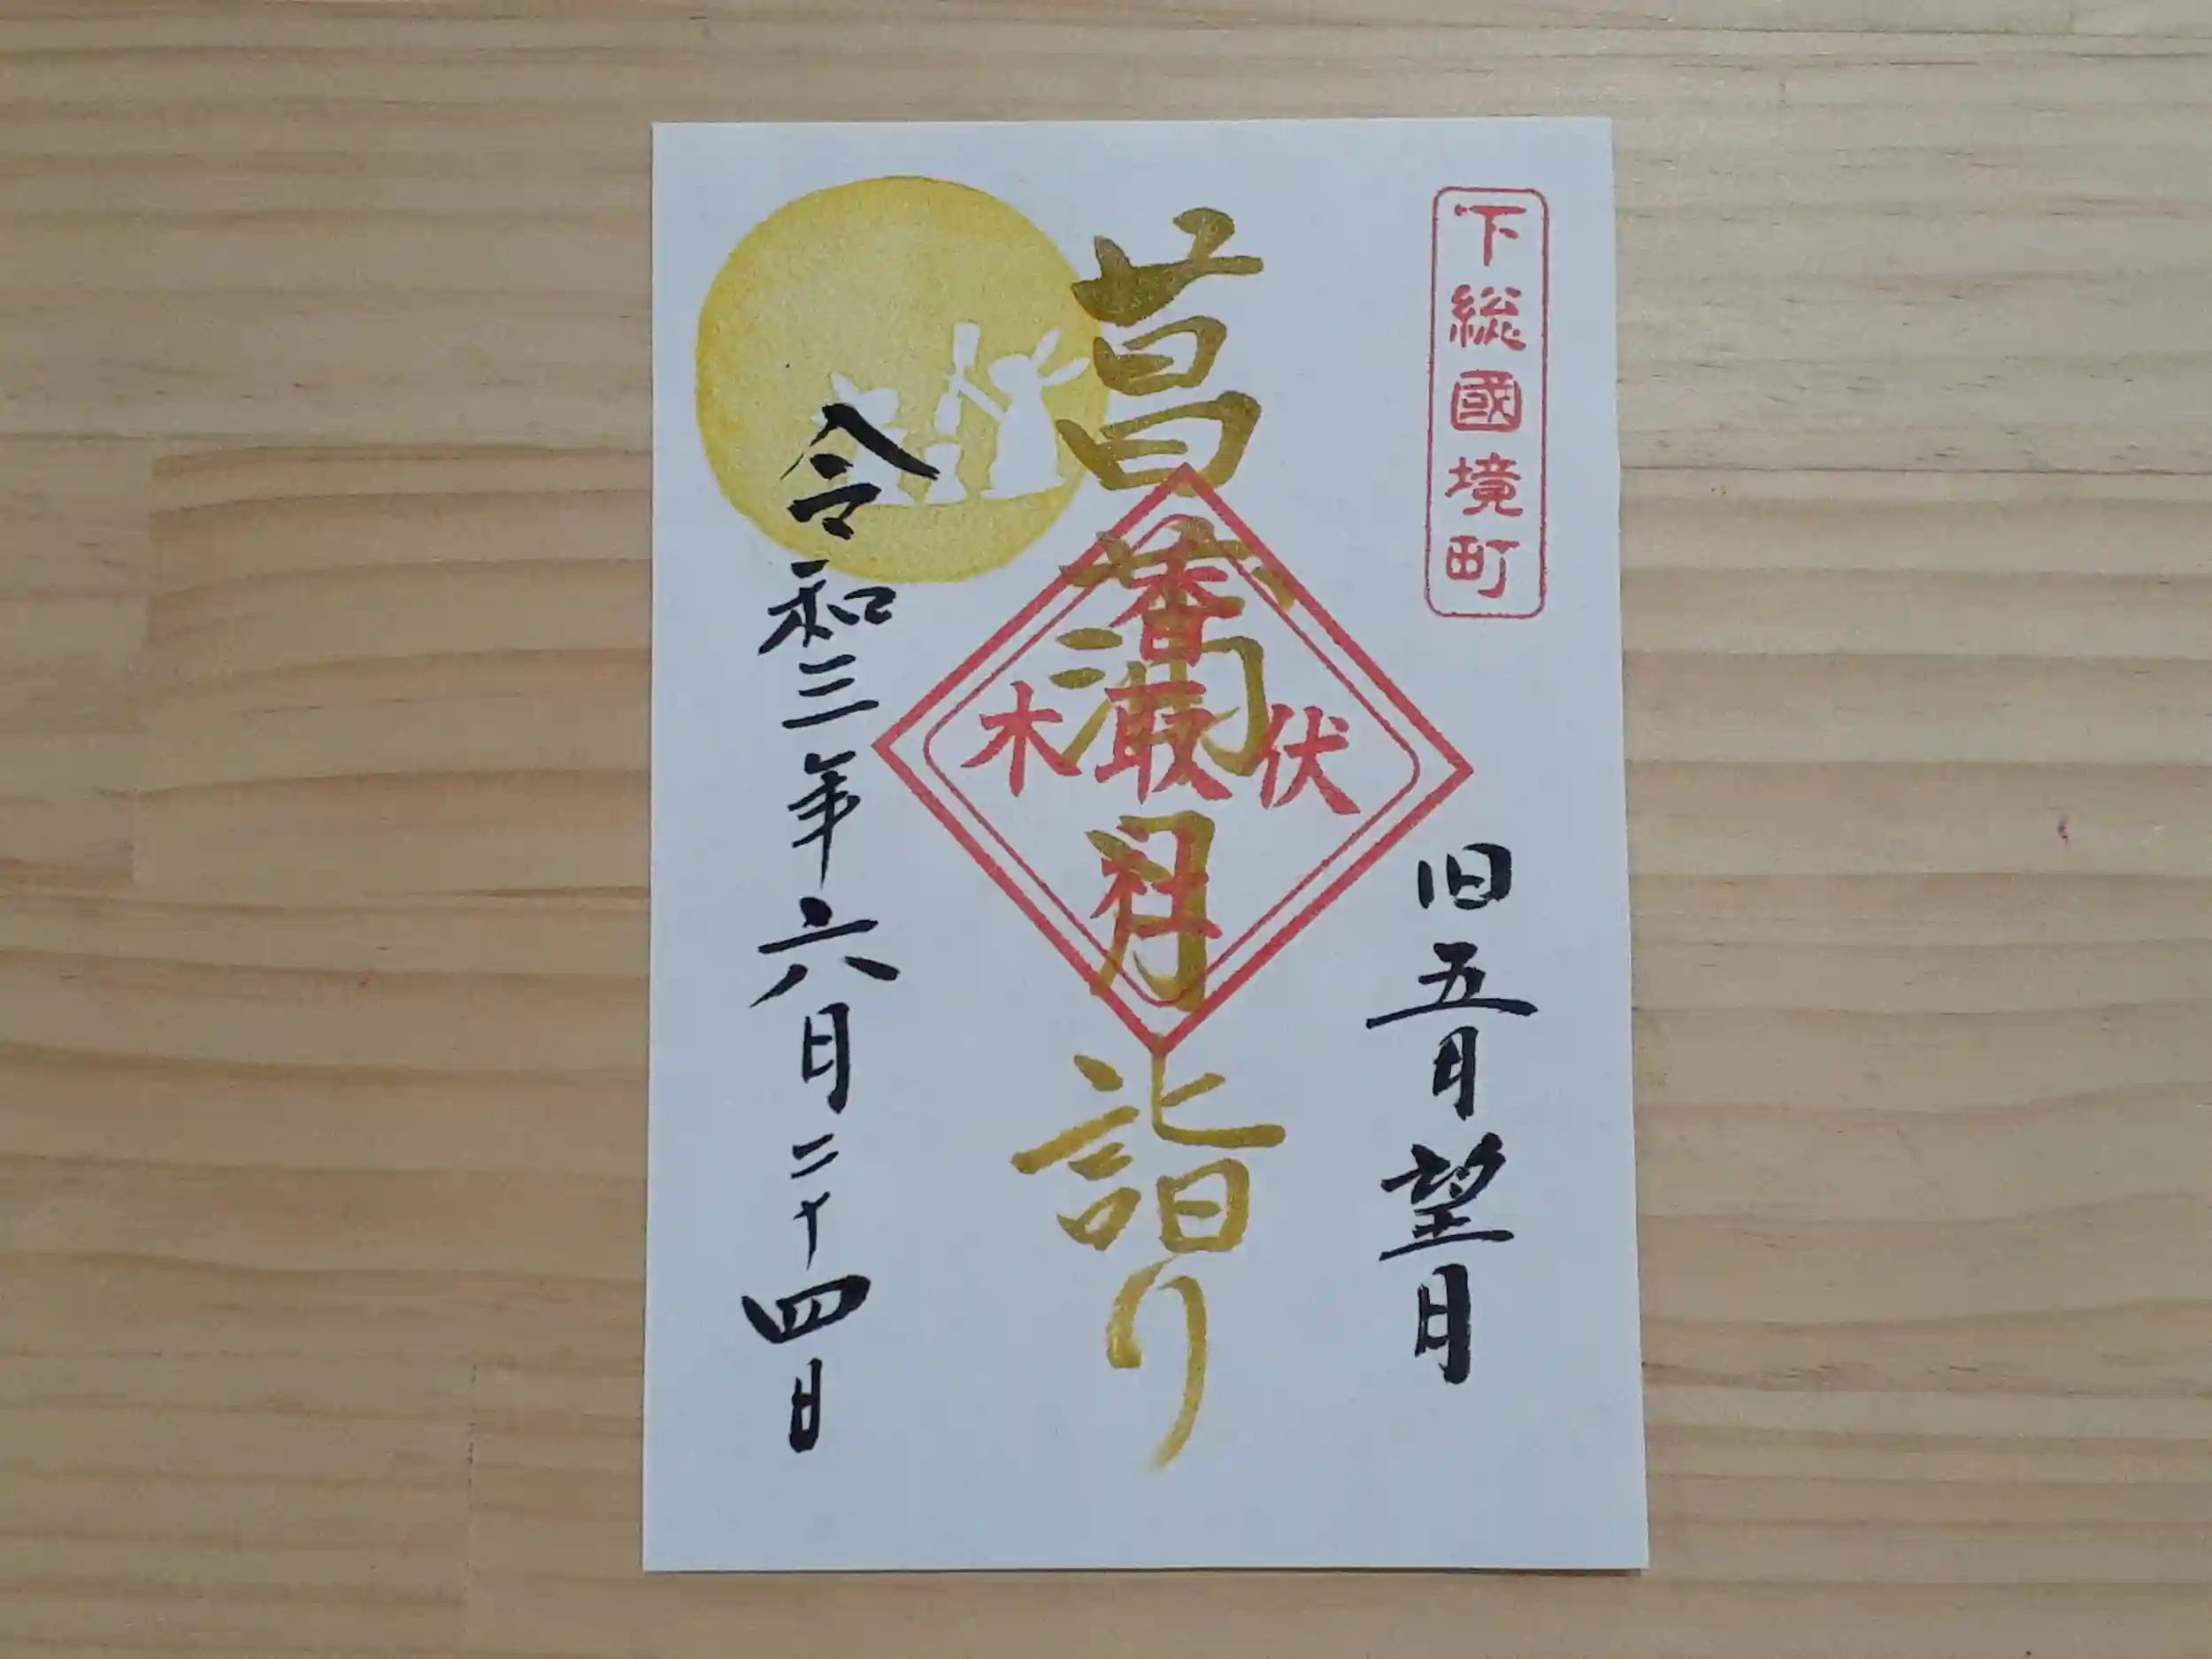 下総國境町
旧五月望月
菖蒲月詣り
香取社
伏木
令和三年六月二十四日